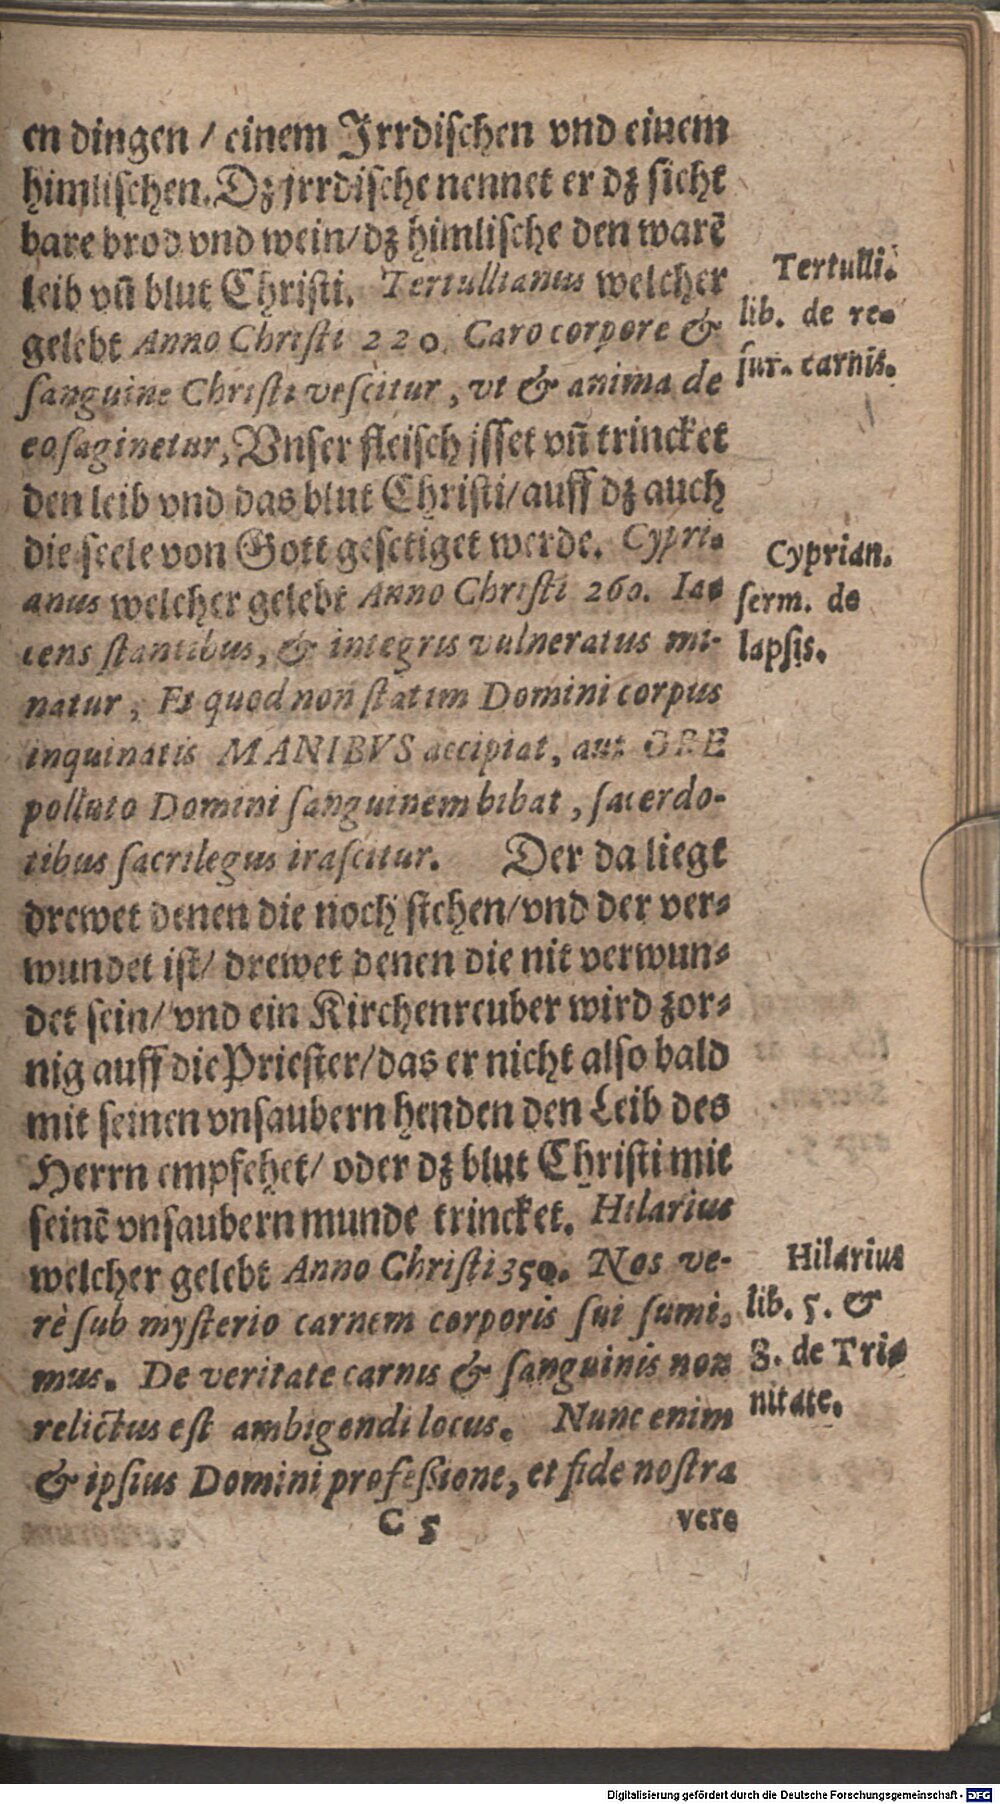 en dingen / einem Jrrdischen vnd einem
himlischen. Dz jrrdische nennet er dz sicht
bare brod vnd wein / dz himlische den warē
leib vñ blut Christi. Tertullianus welcher
gelebt Anno Christi 220. Caro corpore &
sanguine Christi vescitur, vt & anima de
eo saginetur, Vnser fleisch jsset vñ trincket
den leib vnd das blut Christi / auff dz auch
die seele von Gott gesetiget werde. Cypri-
anus welcher gelebt Anno Christi 260. Ia-
cens stantibus, & integris vulneratus mi-
natur, Et quod non statim Domini corpus
inquinatis MANIBVS accipiat, aut ORE
polluto Domini sanguinem bibat, sacerdo-
tibus sacrilegus irascitur. Der da liegt
drewet denen die noch stehen / vnd der ver-
wundet ist / drewet denen die nit verwun-
det sein / vnd ein Kirchenreuber wird zor-
nig auff die Priester / das er nicht also bald
mit seinen vnsaubern henden den Leib des
Herrn empfehet / oder dz blut Christi mit
seinē vnsaubern munde trincket. Hilarius
welcher gelebt Anno Christi 350. Nos ve-
rè sub mysterio carnem corporis sui sumi-
mus. De veritate carnis & sanguinis non
relictus est ambigendi locus. Nunc enim
& ipsius Domini professione, et fide nostra
C 5 vere
Tertulli.
lib. de re-
sur. carnis.
Cyprian.
serm. de
lapsis.
Hilarius
lib. 5. &
8. de Tri-
nitate.
Digitalisierung gefördert durch die Deutsche Forschungsgemeinschaft - DFG